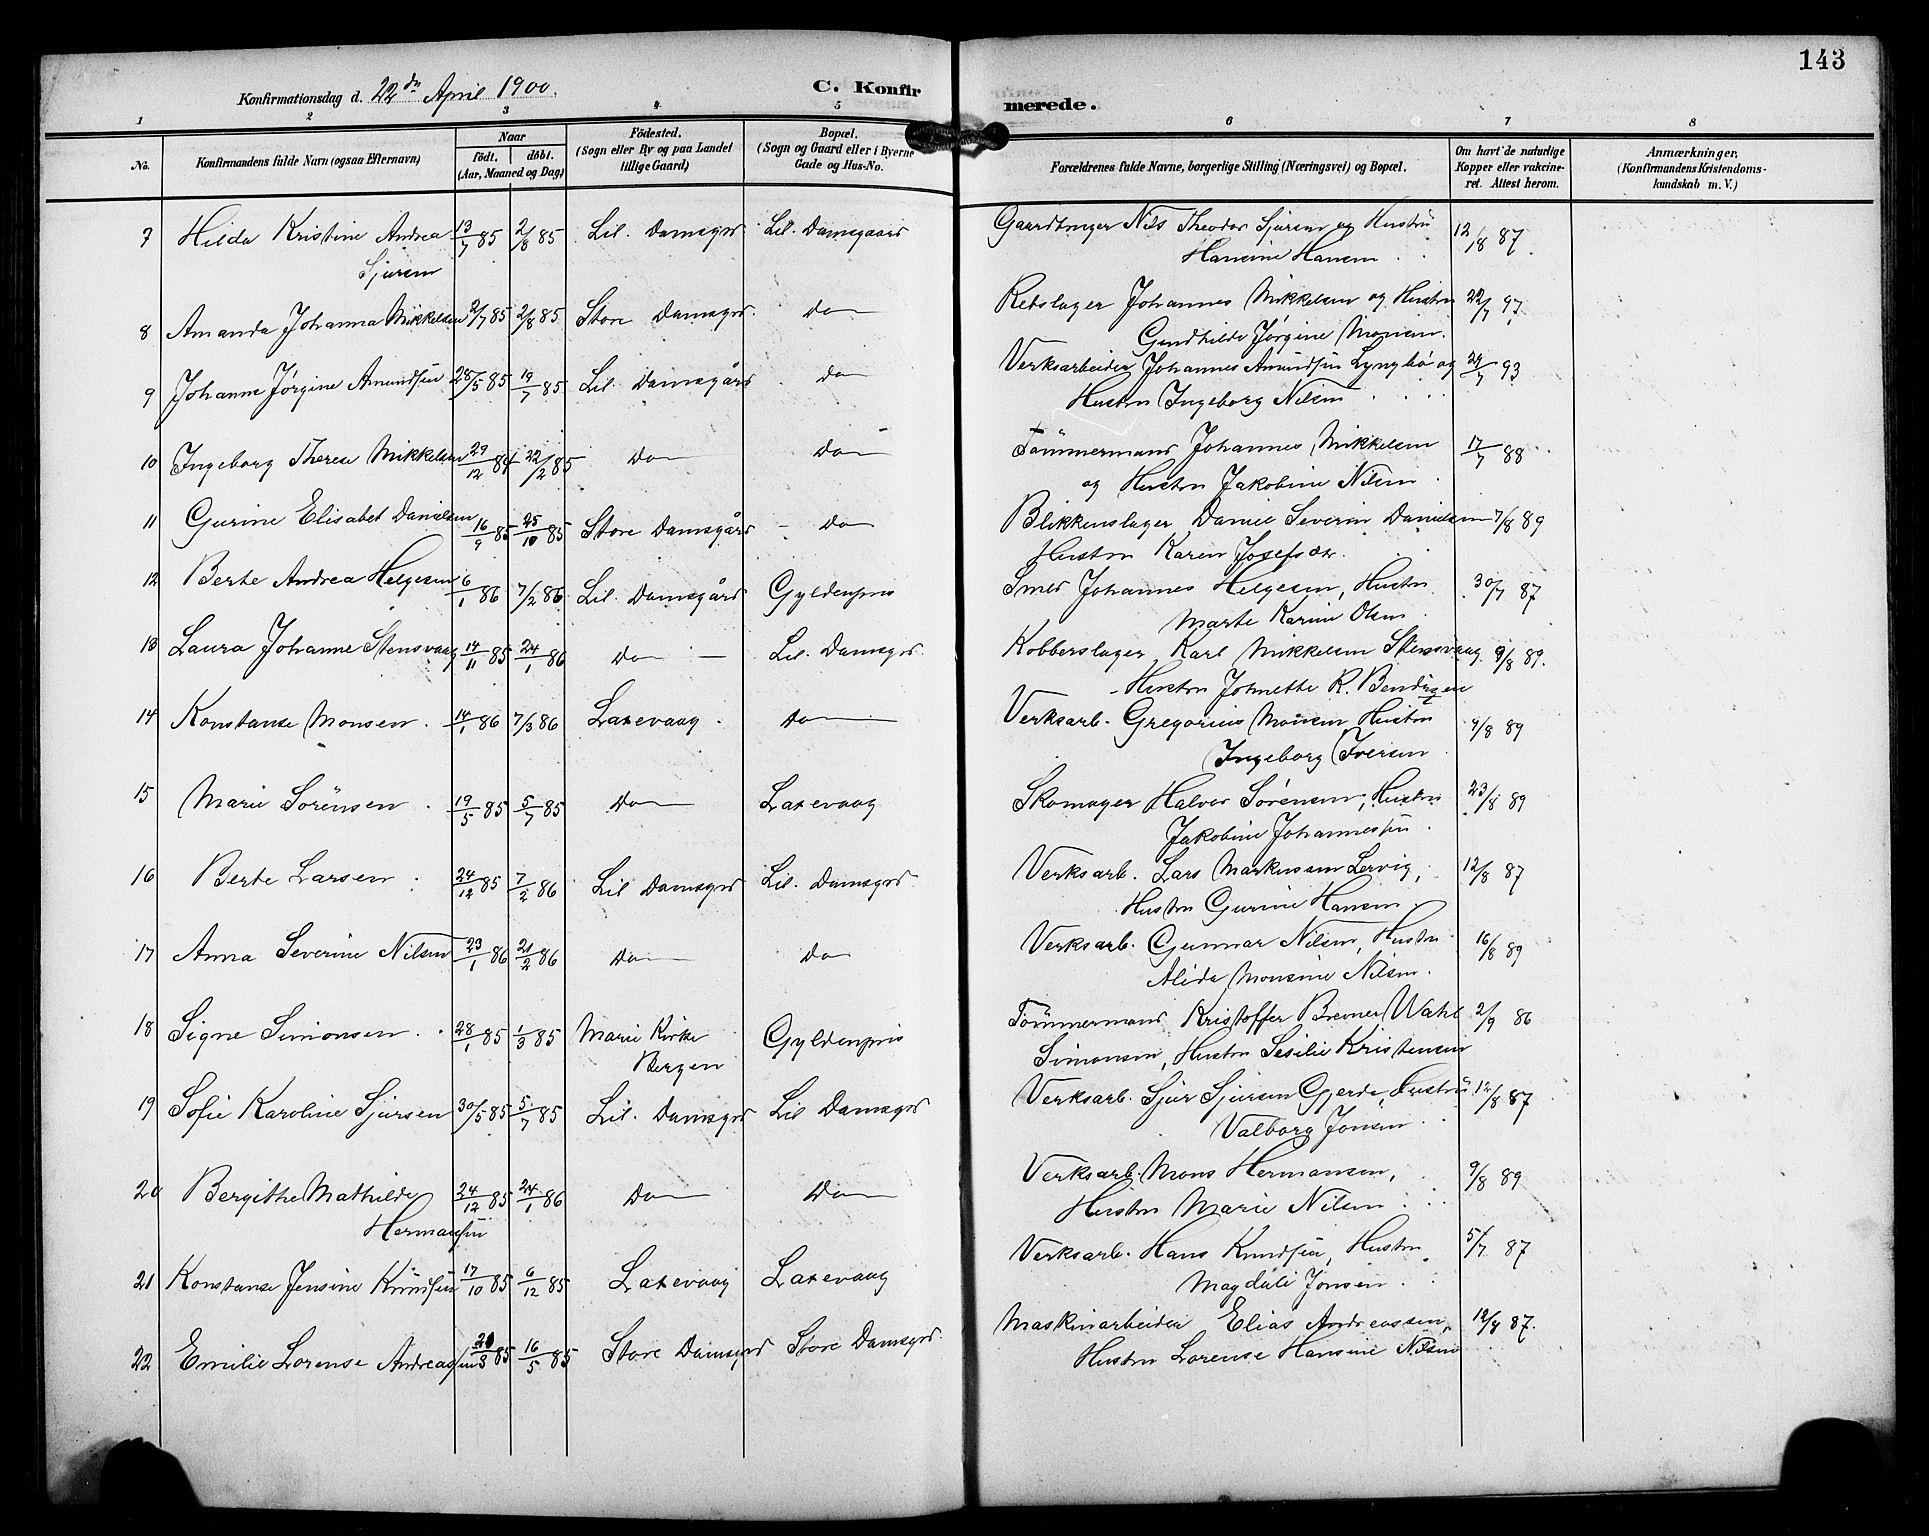 143
Konfirmationsdag d. 22de April 1900.
C. Konfirmerede.
1 2 3 4 5 6 7 8
No. Konfirmandens fulde Navn (ogsaa Efternavn) Naar født. døbt. (Aar, Maaned og Dag) Födested. (Sogn eller By og paa Landet tillige Gaard) Bopæl. (Sogn og Gaard eller i Byerne Gade og Hus-No. Forældrenes fulde Navne, borgerlige Stilling (Næringsvei) og Bopæl. Om havt de naturlige Kopper eller vakcineret. Attest herom. Anmærkninger. (Konfirmandens Kristendomskundskab m. V.)
7 Hilda Kristine Andrea 13/7 85 2/8 85 Lil. Damsgrd Lil. Damsgaard Gaardbruger Nils Theodor Sjursen og Hustru 12/8 87
Sjursen Hansine Hansen
8 Amanda Johanna Mikkelsen 2/7 85 2/8 85 Store Damsgrd. Do Rebslager Johannes Mikkelsen og Hustru 22/7 97
Gundhilde Jørgine Monsen.
9 Johanne Jørgine Amundsen 28/5 85 19/7 85 Lil. Damsgård Do Verksarbeider Johannes Amundsen Lyngbø og 29/7 93
Hustru Ingeborg Nilsen
10 Ingeborg Therese Mikkelsen 29/12 84 22/2 85 Do Do Tömmermand Johannes Mikkelsen 17/7 88
og Hustru Jakobine Nilsen
11 Gurine Elisabet Danielsen 16/9 85 25/10 85 Store Damsgård Do Blikkenslager Daniel Severin Danielsen 7/8 89
Hustru Karen Josefsdtr.
12 Berte Andrea Helgesen 6/1 86 7/2 86 Lil. Damsgård Gyldenpris Smed Johannes Helgesen, Hustru 30/7 87
Marte Karine Olsen
13 Laura Johanne Stensvaag 14/11 85 24/1 86 Do Lil. Damsgrd. Kobberslager Karl Mikkelsen Stensvaag 9/8 89.
Hustru Johnette R. Bendixen
14 Konstanse Monsen. 14/1 86 7/3 86 Laxevaag. Do Verksarb. Gregorius Monsen Hustru 9/8 89
Ingeborg Iversen
15 Marie Sörensen. 19/5 85 5/7 85 Do Laxevaag Skomager Halvor Sörensen, Hustru 23/8 89
Jakobine Johannessen.
16 Berte Larsen 24/12 85 7/2 86 Lil Damsgrd Lil. Damsgrd. Verksarb. Lars Markussen Lervig, 12/8 87
Hustru Gurine Hansen
17 Anna Severine Nilsen 23/1 86 21/2 86 Do Do Verksarb. Gunnar Nilsen, Hustru 16/8 89
Alida Monsine Nilsen.
18 Signe Simonsen. 28/1 85 1/3 85 Marie Kirke Gyldenpris Tömmermand Kristoffer Bremer Wahl 2/9 86
Bergen Simonsen, Hustru Sesilie Kristensen
19 Sofie Karoline Sjursen 30/5 85 5/7 85 Lil. Damsgrd Lil Damsgrd Verksarb. Sjur Sjursen Gjerde, Hustru 12/8 87
Valborg Jonsen
20 Bergitte Mathilde 24/12 85 24/1 86 Do Do Verksarb. Mons Hermansen, 9/8 89
Hermansen Hustru Marie Nilsen
21 Konstanse Jensine Knudsen 17/10 85 6/12 85 Laxevaag Laxevaag Verksarb. Hans Knudsen, Hustru 5/7 87
Magdali Jonsen
22 Emilie Lorense Andreassen 85 16/5 85 Store Damsgrd Store Damsgrd. Maskinarbeider Elias Andreassen, 12/8 87.
Hustru Lorense Hansine Nilsen